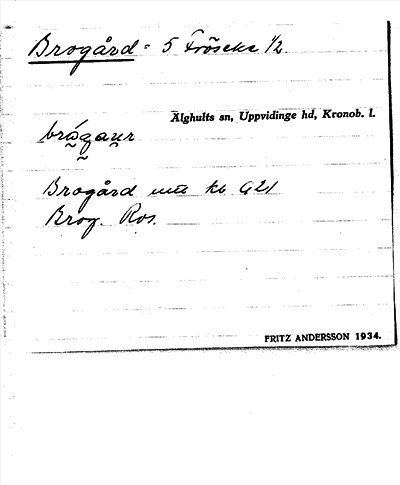 Brogård = 5 Fröseke 1/2
Älghults sn, Uppvidinge hd, Kronob. l.
Brogård kb 921
Brog. Ros.
FRITZ ANDERSSON 1934.